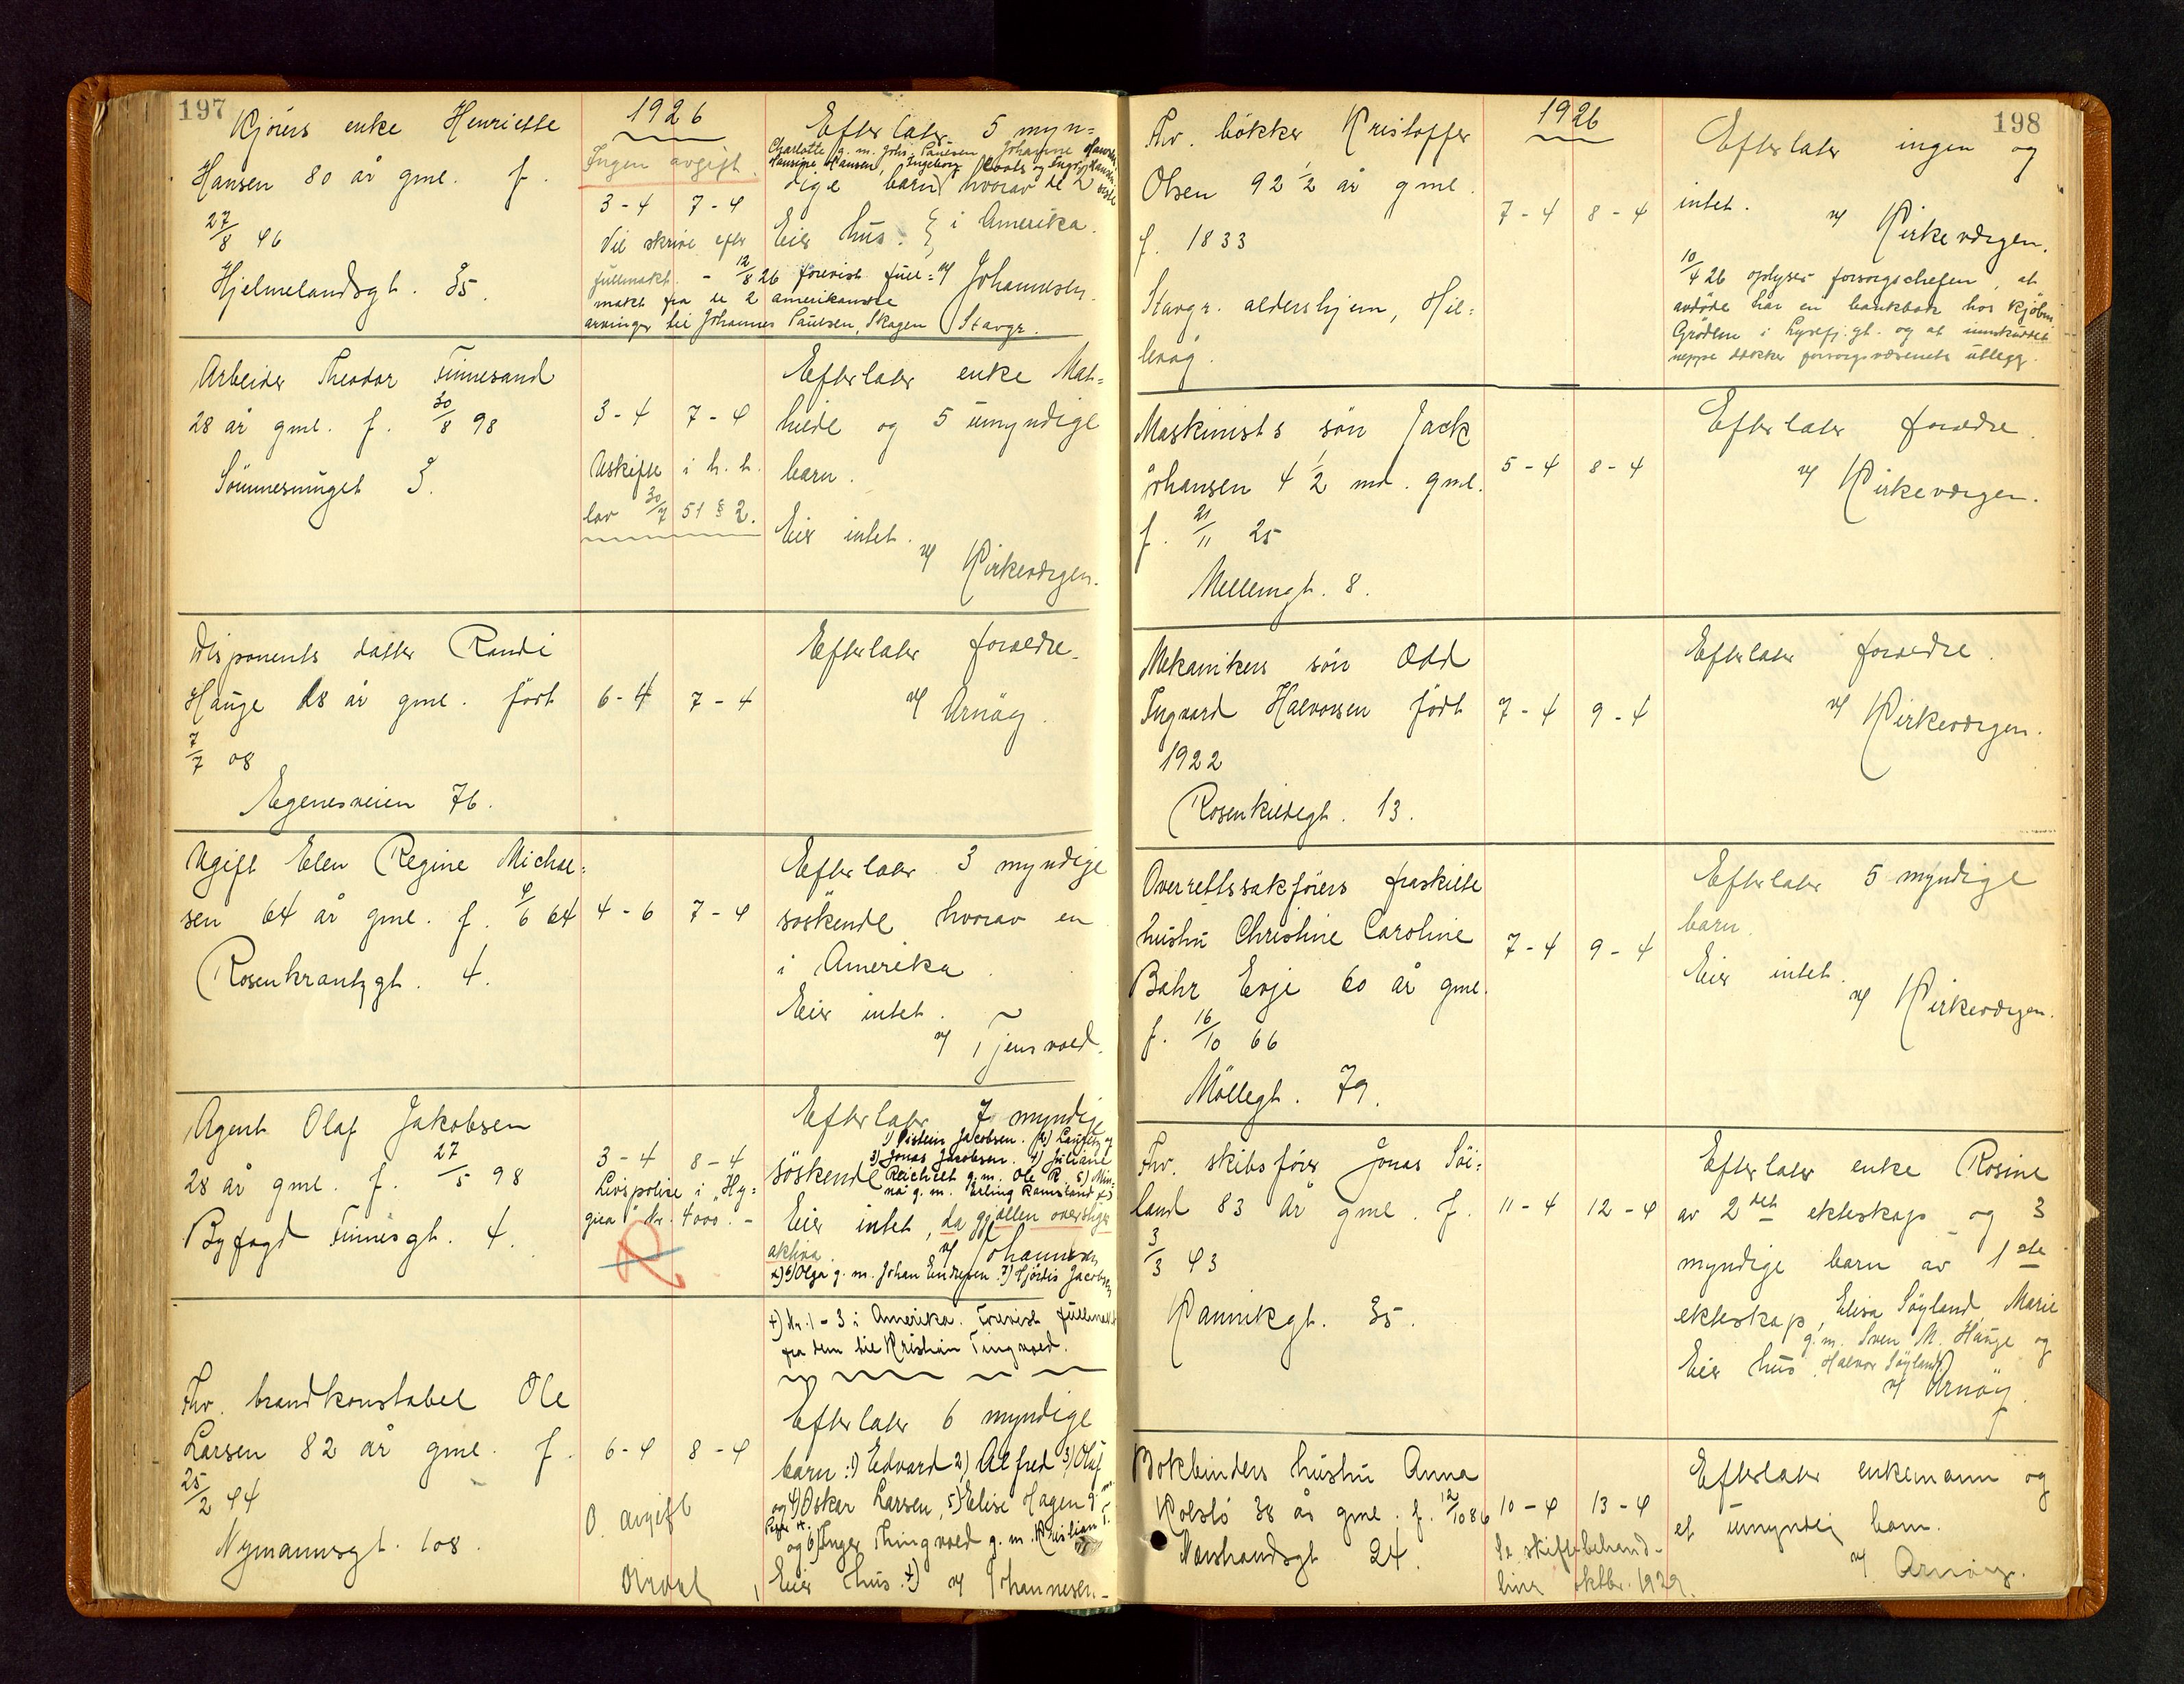 197
1926
Kjörers enke Henriette
Hansen 80 år gml. f.
27/8 46
Hjelmelandsgt. 35.
Ingen avgift.
3-4 7-4
Vil skrive efter
fullmakt. - 12/8 26 forevist full=
makt fra de 2 amerikanske
arvinger til Johannes Paulsen, Skagen Stavgr.
Efterlater 5 myn=
Charlotte g.m. Johs. Paulsen, Johanne Hansen
Hansine Hansen, Ingeborg og Hansen
dige barn hvorav de 2 siste
Eier hus. i Amerika.
v/ Johannesen.
Arbeider Theodor Finnesand
28 år gml. f. 30/8 98
3.
3-4 7-4
Uskifte i h. t.
lov 30/7 51 § 2.
Efterlater enke Mat=
hilde og 5 umyndige
barn.
Eier intet.
v/ Kirkevergen.
Disponents datter Randi
Hauge 18 år gml. født
7/7 08
Egenesveien 76.
6-4 7-4
Efterlater foreldre.
v/ Arnøy.
Ugift Elen Regine Michael=
sen 64 år gml. f. 4/6 64
Rosenkrantzgt. 4.
4-6 7-4
Efterlater 3 myndige
söskende hvorav en
i Amerika.
Eier intet.
v/ Tjensvold.
Agent Olaf Jakobsen
28 år gml. f. 27/5 98
Byfogd Finnesgt. 4.
3-4 8-4
Livspolise i "Hy=
giea" kr. 4000.-
Efterlater 7 myndige
1) Øistein Jacobsen. 2) og
3) Jonas Jacobsen. 4) Juliane
söskende Reichelt g.m. Ole R. 5) Min=
na g.m. Erling Ramsland x)
Eier intet, da gjælden overstiger
aktiva. v/ Johannesen
x) 6) Olga g.m. Johan Endresen. 7) Hjördis Jacobsen
+) Nr. 1-3 i Amerika. Forevist fullmakt
fra dem til Kristian Tingvold.
Fhv. brandkonstabel Ole
Larsen 82 år gml. f.
25/2 44
Nymannsgt. 108.
6-4 8-4
O. avgift
Efterlater 6 myndige
barn: 1) Edvard 2) Alfred 3) Olaf
og 4) Oskar Larsen, 5) Elise Hagen g.m.
Peder H. og 6) Inger Thingvold g.m. Kristian T.
Eier hus. +) v/ Johannesen.
198
1926
Fhv. bökker Kristoffer
Olsen 92 1/2 år gml.
f. 1833
Stavgr. aldershjem, Hil=
levåg.
7-4 8-4
Efterlater ingen og
intet.
v/ Kirkevergen.
10/4 26 oplyser forsorgschefen, at
avdöde har en bankbok hos kjöbm.
Grödem i Lysefj.gt. og at innskuddet
neppe dekker forsorgsvesenets utlegg.
Maskinists sön Jack
Johansen 4 1/2 md. gml.
f. 21/11 25
Mellemgt. 8.
5-4 8-4
Efterlater foreldre.
v/ Kirkevergen.
Mekanikers sön Odd
Ingvard Halvorsen födt
1922
Rosenkildegt. 13.
7-4 9-4
Efterlater foreldre.
v/ Kirkevergen.
Overrettssakförers fraskilte
hustru Christine Caroline
Bahr Evje 60 år gml.
f. 16/10 66
Möllegt. 79.
7-4 9-4
Efterlater 5 myndige
barn.
Eier intet.
v/ Kirkevergen.
Fhv. skibsförer Jonas Söi=
land 83 år gml. f.
3/3 43
Kannikgt. 35.
11-4 12-4
Efterlater enke Rosine
av 2det ekteskap og 3
myndige barn av 1ste
ekteskap, Elisa Söyland, Marie
g.m. Sven M. Hauge og
Eier hus. Halvor Söyland
v/ Arnöy.
Bokbinders hustru Anna
Kolstö 38 år gml. f. 12/10 86
Norstrandsgt. 24.
10-4 13-4
Se skiftebehand-
ling oktbr. 1929.
Efterlater enkemann og
et umyndig barn.
v/ Arnöy.